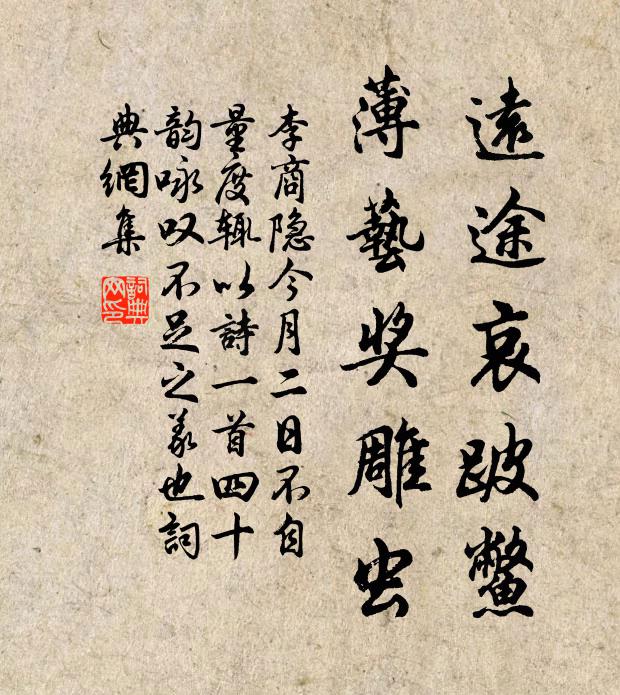 遠途哀跛鱉
薄藝奖雕虫
李商隐今月二日不自
量度輒以詩一首四十
韵咏叹不足之義也詞
典網集
詞典
网印